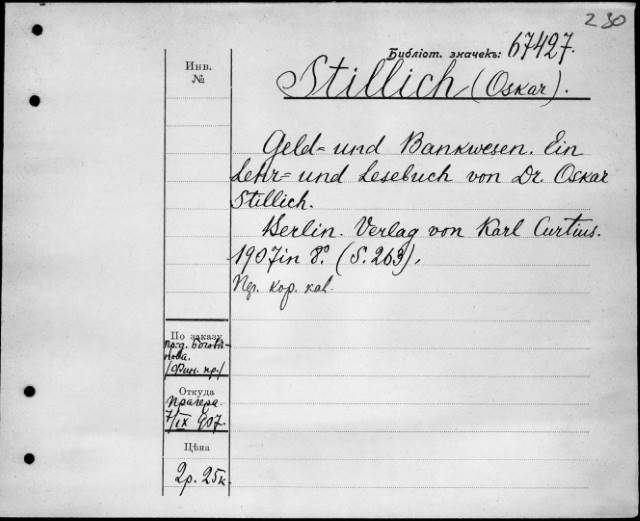 230
Библіот. значекъ: 67427.
Инв.
№
Stillich (Oskar).
Geld= und Bankwesen. Ein
Lehr= und Lesebuch von Dr. Oskar
Stillich.
Berlin. Verlag von Karl Curtius.
1907 in 8.° (S. 263).
кор. каб.
По заказу
(Фин. пр.)
Откуда
Прагера
7/IX 907.
Цѣна
2р. 25к.